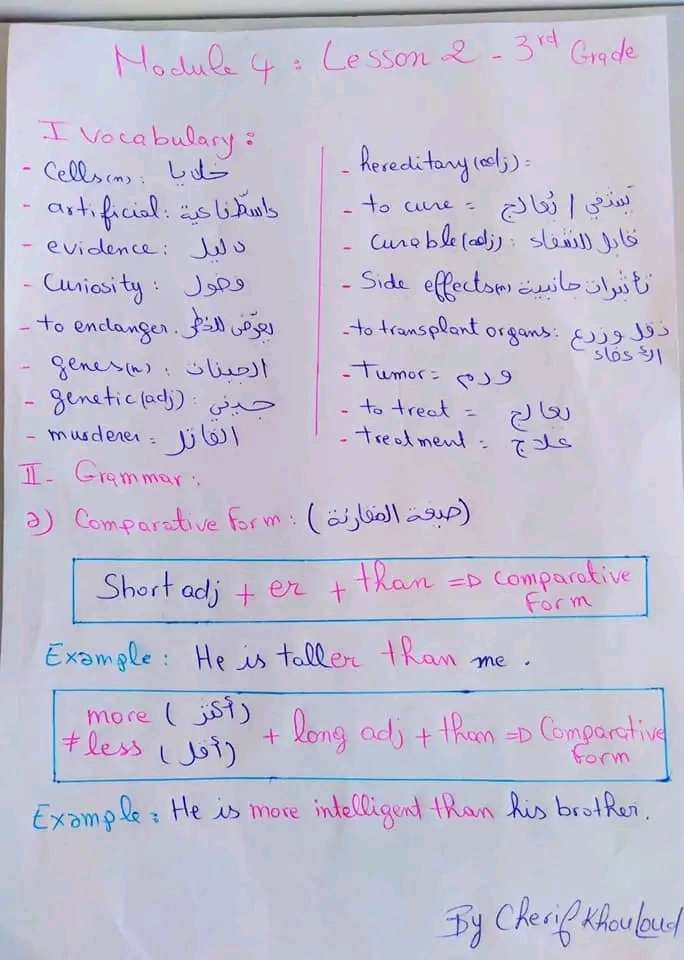 Module 4 : Lesson 2 - 3rd Grade
I Vocabulary :
- Cells(n) : خلايا
- artificial : اصطناعية
- evidence : دليل
- Curiosity : فضول
- to endanger. يعرّض للخطر
- genes(n) : الجينات
- genetic(adj) : جيني
- murderer = القاتل
- hereditary(adj) =
- to cure = يَشفي / يُعالج
- Curable(adj) : قابل للشفاء
- Side effects(n) تأثيرات جانبية
- to transplant organs : نقل وزرع
الأعضاء
- Tumor = ورم
- to treat = يعالج
- treatment = علاج
II - Grammar :
a) Comparative form : (صيغة المقارنة)
Short adj + er + than => Comparative
form
Example : He is taller than me .
more (أكثر)
≠ less (أقل) + long adj + than => Comparative
form
Example : He is more intelligent than his brother.
By Cherif Khouloud